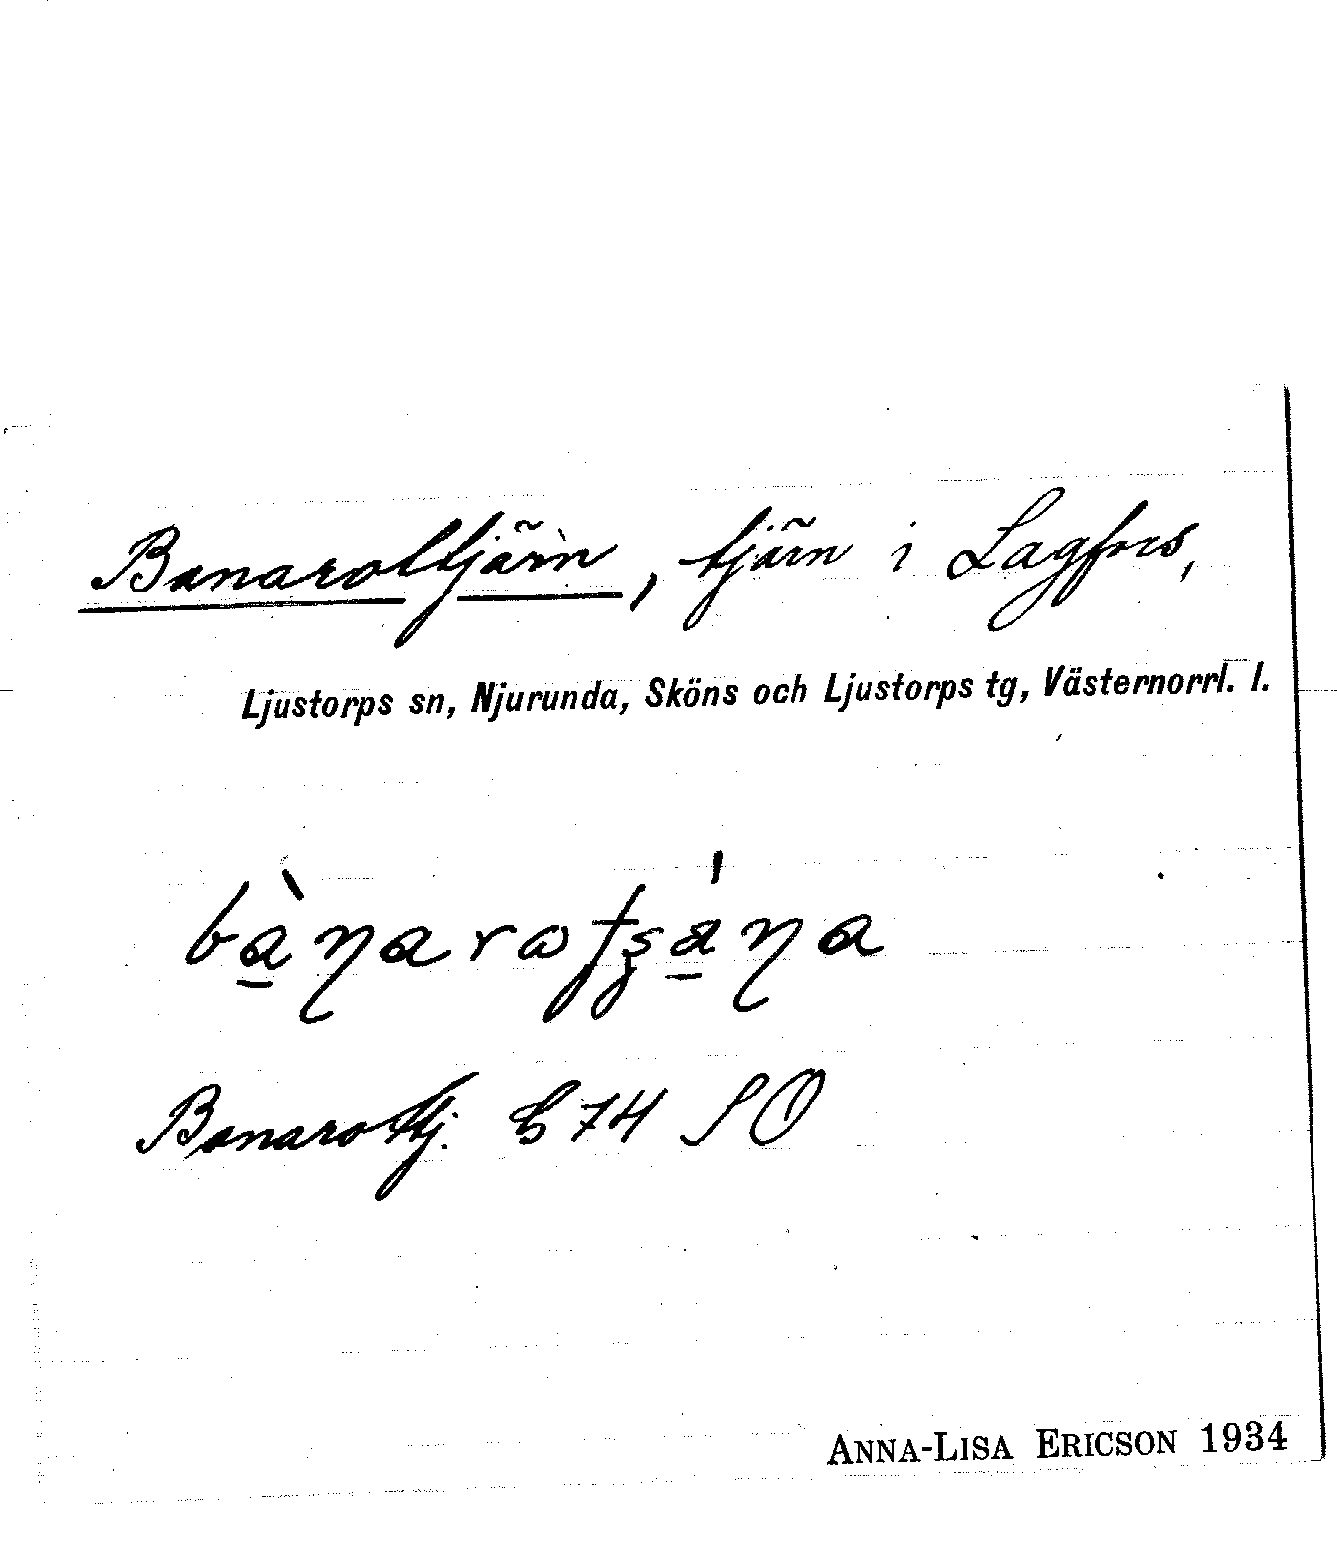 Banarottjärn, tjärn i Lagfors,
Ljustorps sn, Njurunda, Sköns och Ljustorps tg, Västernorrl. l.
Banarottj. E 74 SO
ANNA-LISA ERICSON 1934